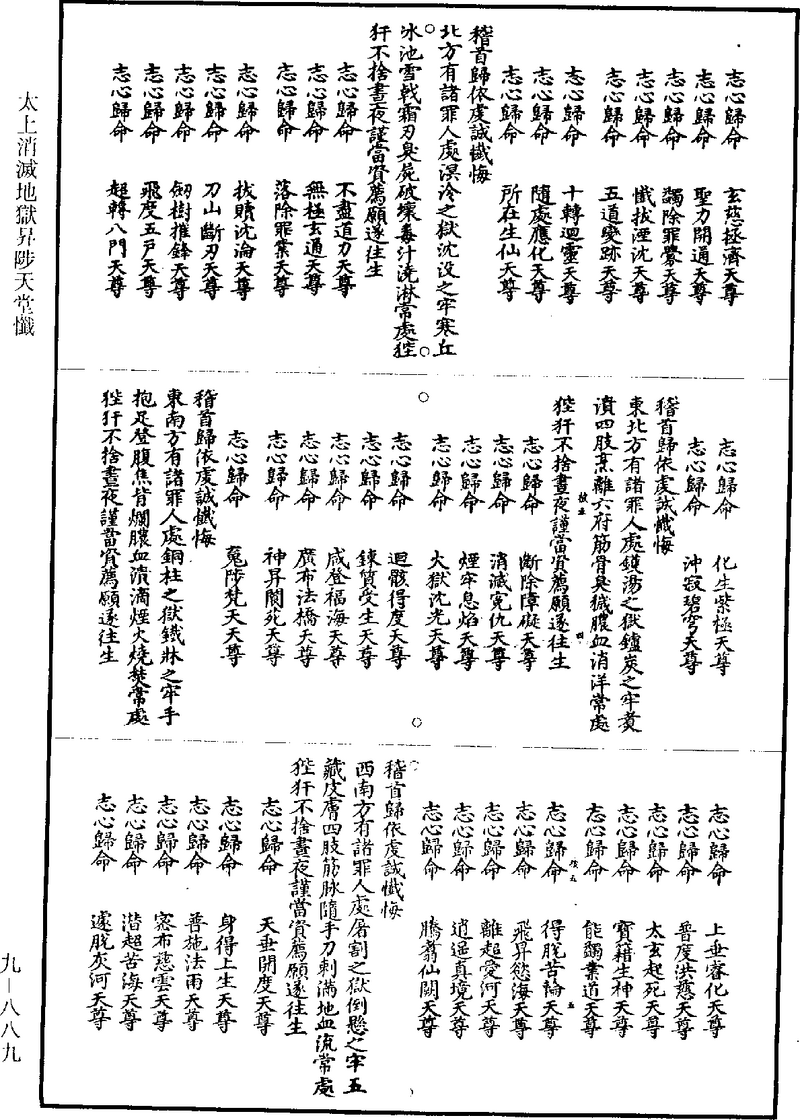 太上消滅地獄昇陟天堂懺
志心歸命　玄慈拯濟天尊
志心歸命　聖力開通天尊
志心歸命　蠲除罪釁天尊
志心歸命　懺拔湮沈天尊
志心歸命　五道變跡天尊
志心歸命　十轉迴靈天尊
志心歸命　隨處應化天尊
志心歸命　所在生仙天尊
稽首歸依虔誠懺悔
北方有諸罪人處溟泠之獄沈没之牢寒丘
冰池雪戟霜刃臭屍破壞毒汁澆淋常處狴
犴不捨晝夜謹當資薦願遂往生
志心歸命　不盡道力天尊
志心歸命　無極玄通天尊
志心歸命　落除罪業天尊
志心歸命　拔贖沈淪天尊
志心歸命　刀山斷刃天尊
志心歸命　劒樹摧鋒天尊
志心歸命　飛度五戶天尊
志心歸命　超轉八門天尊
志心歸命　化生紫極天尊
志心歸命　沖寂碧穹天尊
稽首歸依虔誠懺悔
東北方有諸罪人處鑊湯之獄鑪炭之牢煮
潰四肢烹離六府筋骨臭穢膿血消洋常處
狴犴不捨晝夜謹當資薦願遂往生
志心歸命　斷除障礙天尊
志心歸命　消滅寃仇天尊
志心歸命　煙牢息焰天尊
志心歸命　火獄沈光天尊
志心歸命　迴骸得度天尊
志心歸命　鍊質受生天尊
志心歸命　咸登福海天尊
志心歸命　廣布法橋天尊
志心歸命　神昇閬苑天尊
志心歸命　䰟陟梵天天尊
稽首歸依虔誠懺悔
東南方有諸罪人處銅柱之獄鐵牀之牢手
抱足登腹焦背爛膿血潰滴煙火燒焚常處
狴犴不捨晝夜謹當資薦願遂往生
志心歸命　上垂睿化天尊
志心歸命　普度洪慈天尊
志心歸命　太玄起死天尊
志心歸命　寶籍生神天尊
志心歸命　能蠲業道天尊
志心歸命　得脫苦輪天尊
志心歸命　飛昇慾海天尊
志心歸命　離超愛河天尊
志心歸命　逍遥真境天尊
志心歸命　騰翥仙闕天尊
稽首歸依虔誠懺悔
西南方有諸罪人處屠割之獄倒懸之牢五
藏皮膚四肢筋脉隨手刀刺滿地血流常處
狴犴不捨晝夜謹當資薦願遂往生
志心歸命　天垂開度天尊
志心歸命　身得上生天尊
志心歸命　善施法雨天尊
志心歸命　密布慈雲天尊
志心歸命　潛超苦海天尊
志心歸命　遽脫灰河天尊
九—八八九